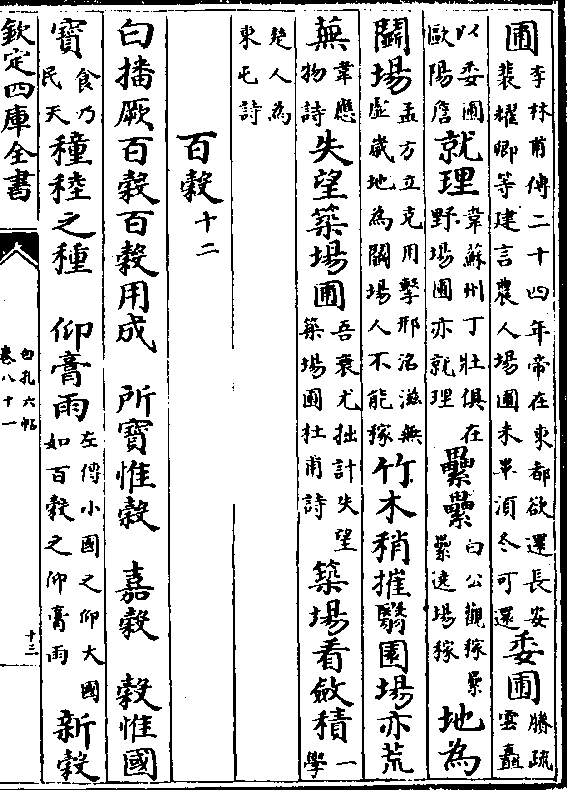 圃李林甫傳二十四年帝在東都欲還長安裴耀卿等建言農人場圃未畢須冬可還委圃勝疏雲矗
以委圃歐陽詹就理韋蘇州丁壯俱在野場圃亦就理纍纍白公觀稼纍纍遶場稼地為
鬭場孟方立克用擊邢洺滋無虛歲地為鬭場人不能稼竹木稍摧翳園場亦荒
蕪韋應物詩失望築場圃吾衰尤拙計失望築場圃杜甫詩築場看斂積一學
楚人為東屯詩
百穀十二
白播厥百穀百穀用成 所寶惟穀 嘉穀 穀惟國
寶食乃民天穜稑之種 仰膏雨左傳小國之仰大國如百穀之仰膏雨新穀
欽定四庫全書
白孔六帖
卷八十一
十三